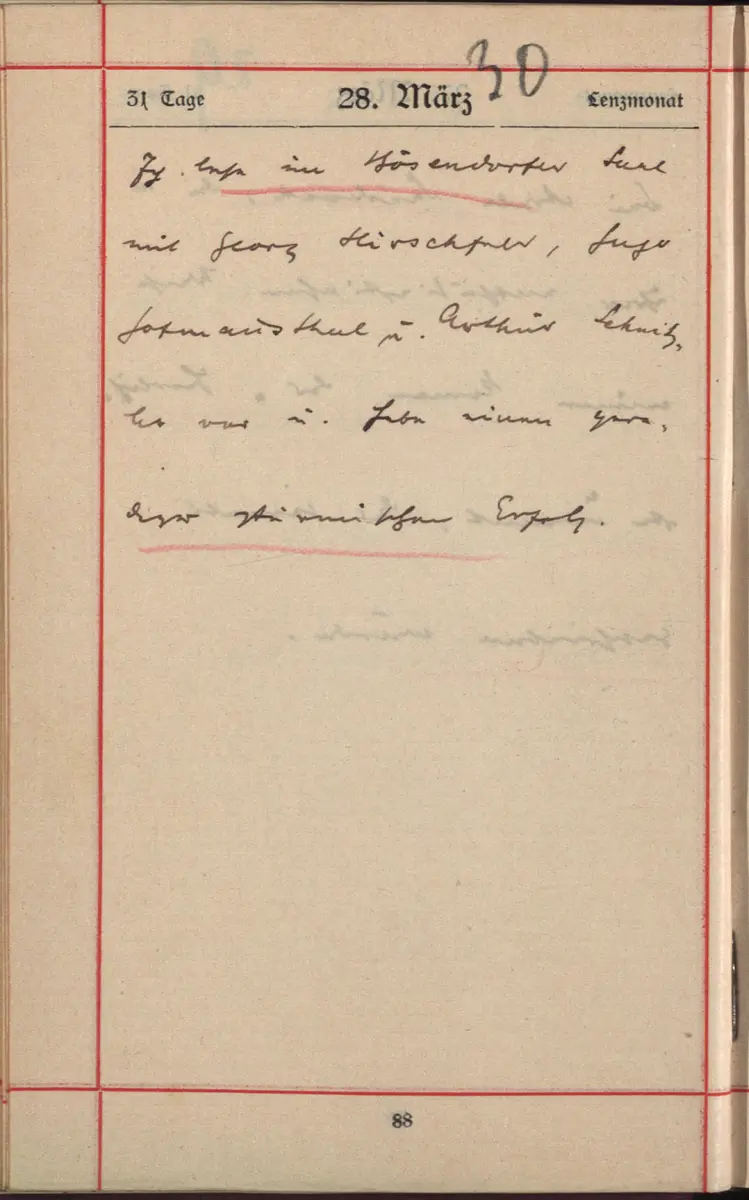 30
31 Tage 28. März Lenzmonat
Ich lese im Bösendorfer Saal
mit Georg Hirschfeld, Hugo
Hofmannsthal u. Arthur Schnitz-
ler vor u. habe einen gera-
dezu stürmischen Erfolg.
88